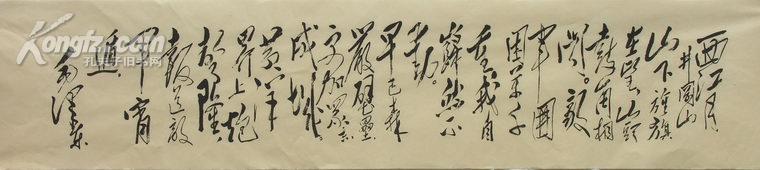 西江月
井冈山
山下旌旗
在望山头
鼓角相
闻。敌
军围
困万千
重我自
岿然不
动。
早已森
严壁垒
更加众志
成城。
黄洋
界上炮
声隆
报道敌
军宵
遁
毛泽东
Kongfz.com
孔夫子旧书网